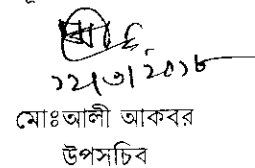 ১২/৩/২০১৮
মোঃআলী আকবর
উপসচিব